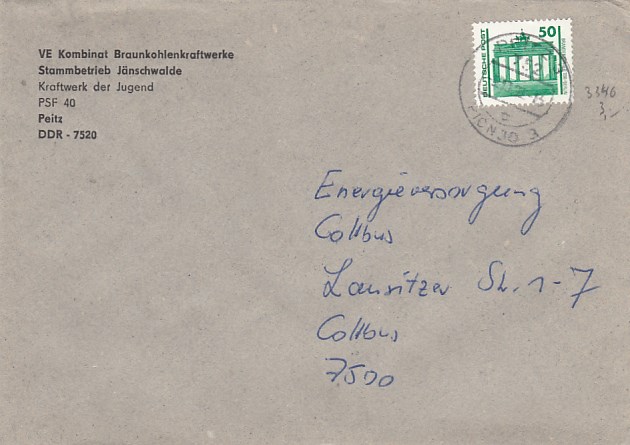 VE Kombinat Braunkohlenkraftwerke
Stammbetrieb Jänschwalde
Kraftwerk der Jugend
PSF 40
Peitz
DDR - 7520
DEUTSCHE POST
50
3346
3,-
Energieversorgung
Cottbus
Lausitzer Str. 1-7
Cottbus
7500